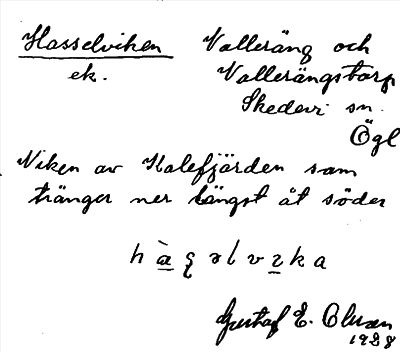 Hasselviken Valleräng och
ek. Vallerängstorp
Skedevi sn.
Ögl
Viken av Kalefjärden som
tränger ner längst åt söder
Gustaf E.
1928